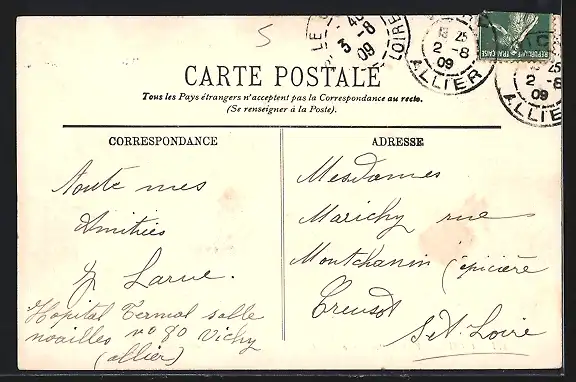 5
LE C
40
3 -8
09
LOIRE
18 25
2 -8
09
ALLIER
REPUBLIQUE FRANÇAISE
25
2 -8
09
ALLIER
CARTE POSTALE
Tous les Pays étrangers n'acceptent pas la Correspondance au recto.
(Se renseigner à la Poste).
CORRESPONDANCE
Toute mes
Amitiés
Larue.
Hopital Termal salle
noailles no 80 Vichy
(allier)
ADRESSE
Mesdames
Marichy rue
Montchanin épicière
Creusot
S et Loire